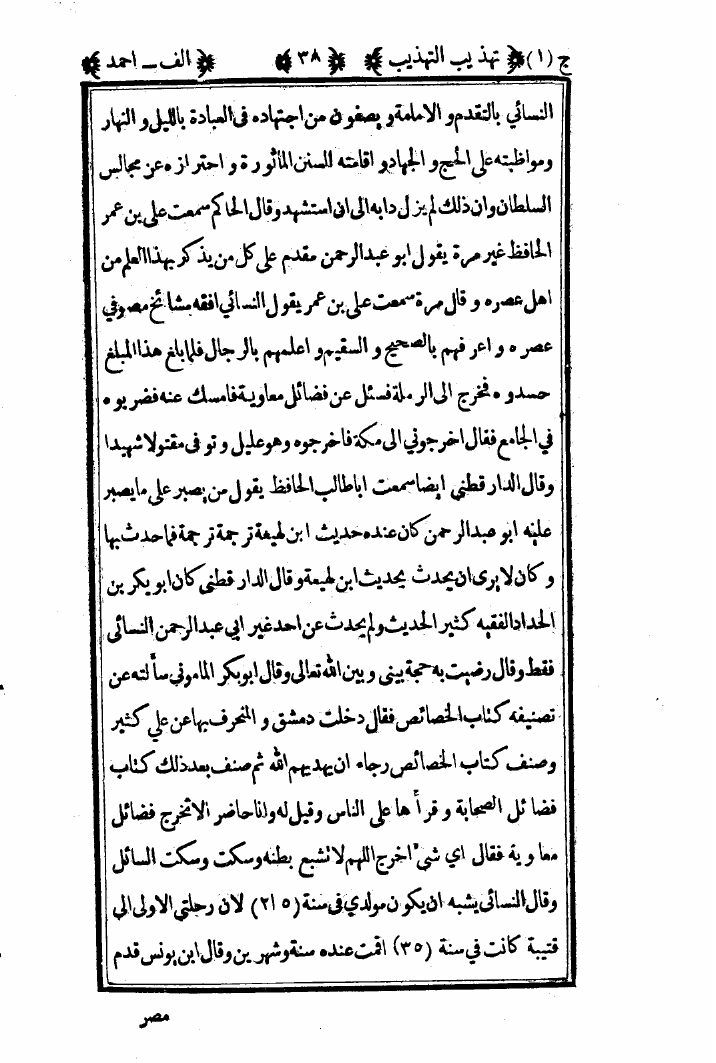 ج (١) ﴿ تهذيب التهذيب ﴾ ﴿ ٣٨ ﴾ ﴿ الف ـ احمد ﴾
النسائي بالتقدم و الامامة و يصفون من اجتهاده فى العبادة بالليل و النهار
ومواظبته على الحج و الجهاد و اقامته للسنن المأثورة و احترازه عن مجالس
السلطان وان ذلك لم يزل دابه الى ان استشهد وقال الحاكم سمعت على بن عمر
الحافظ غير مرة يقول ابو عبدالرحمن مقدم على كل من يذكر بهذا العلم من
اهل عصره و قال مرة سمعت على بن عمر يقول النسائي افقه مشائخ مصر في
عصره و اعرفهم بالصحيح و السقيم و اعلمهم بالرجال فلما بلغ هذا المبلغ
حسدوه فخرج الى الرملة فسئل عن فضائل معاوية فامسك عنه فضربوه
في الجامع فقال اخرجوني الى مكة فاخرجوه وهو عليل و توفى مقتولا شهيدا
وقال الدارقطني ايضا سمعت اباطالب الحافظ يقول من يصبر على ما يصبر
عليه ابو عبدالرحمن كان عنده حديث ابن لهيعة ترجمة ترجمة فما حدث بها
و كان لا يرى ان يحدث بحديث ابن لهيعة وقال الدارقطني كان ابو بكر بن
الحداد الفقيه كثير الحديث ولم يحدث عن احد غير ابي عبدالرحمن النسائى
فقط وقال رضيت به حجة بينى و بين الله تعالى وقال ابو بكر المامونى سألته عن
تصنيفه كتاب الخصائص فقال دخلت دمشق و المنحرف بها عن علي كثير
وصنف كتاب الخصائص رجاء ان يهديهم الله ثم صنف بعد ذلك كتاب
فضائل الصحابة و قرأها على الناس وقيل له وانا حاضر الا تخرج فضائل
معاوية فقال اي شىء اخرج اللهم لا تشبع بطنه وسكت وسكت السائل
وقال النسائى يشبه ان يكون مولدي فى سنة (٢١٥) لان رحلتى الاولى الى
قتيبة كانت في سنة (٣٥) اقمت عنده سنة وشهرين وقال ابن يونس قدم
مصر